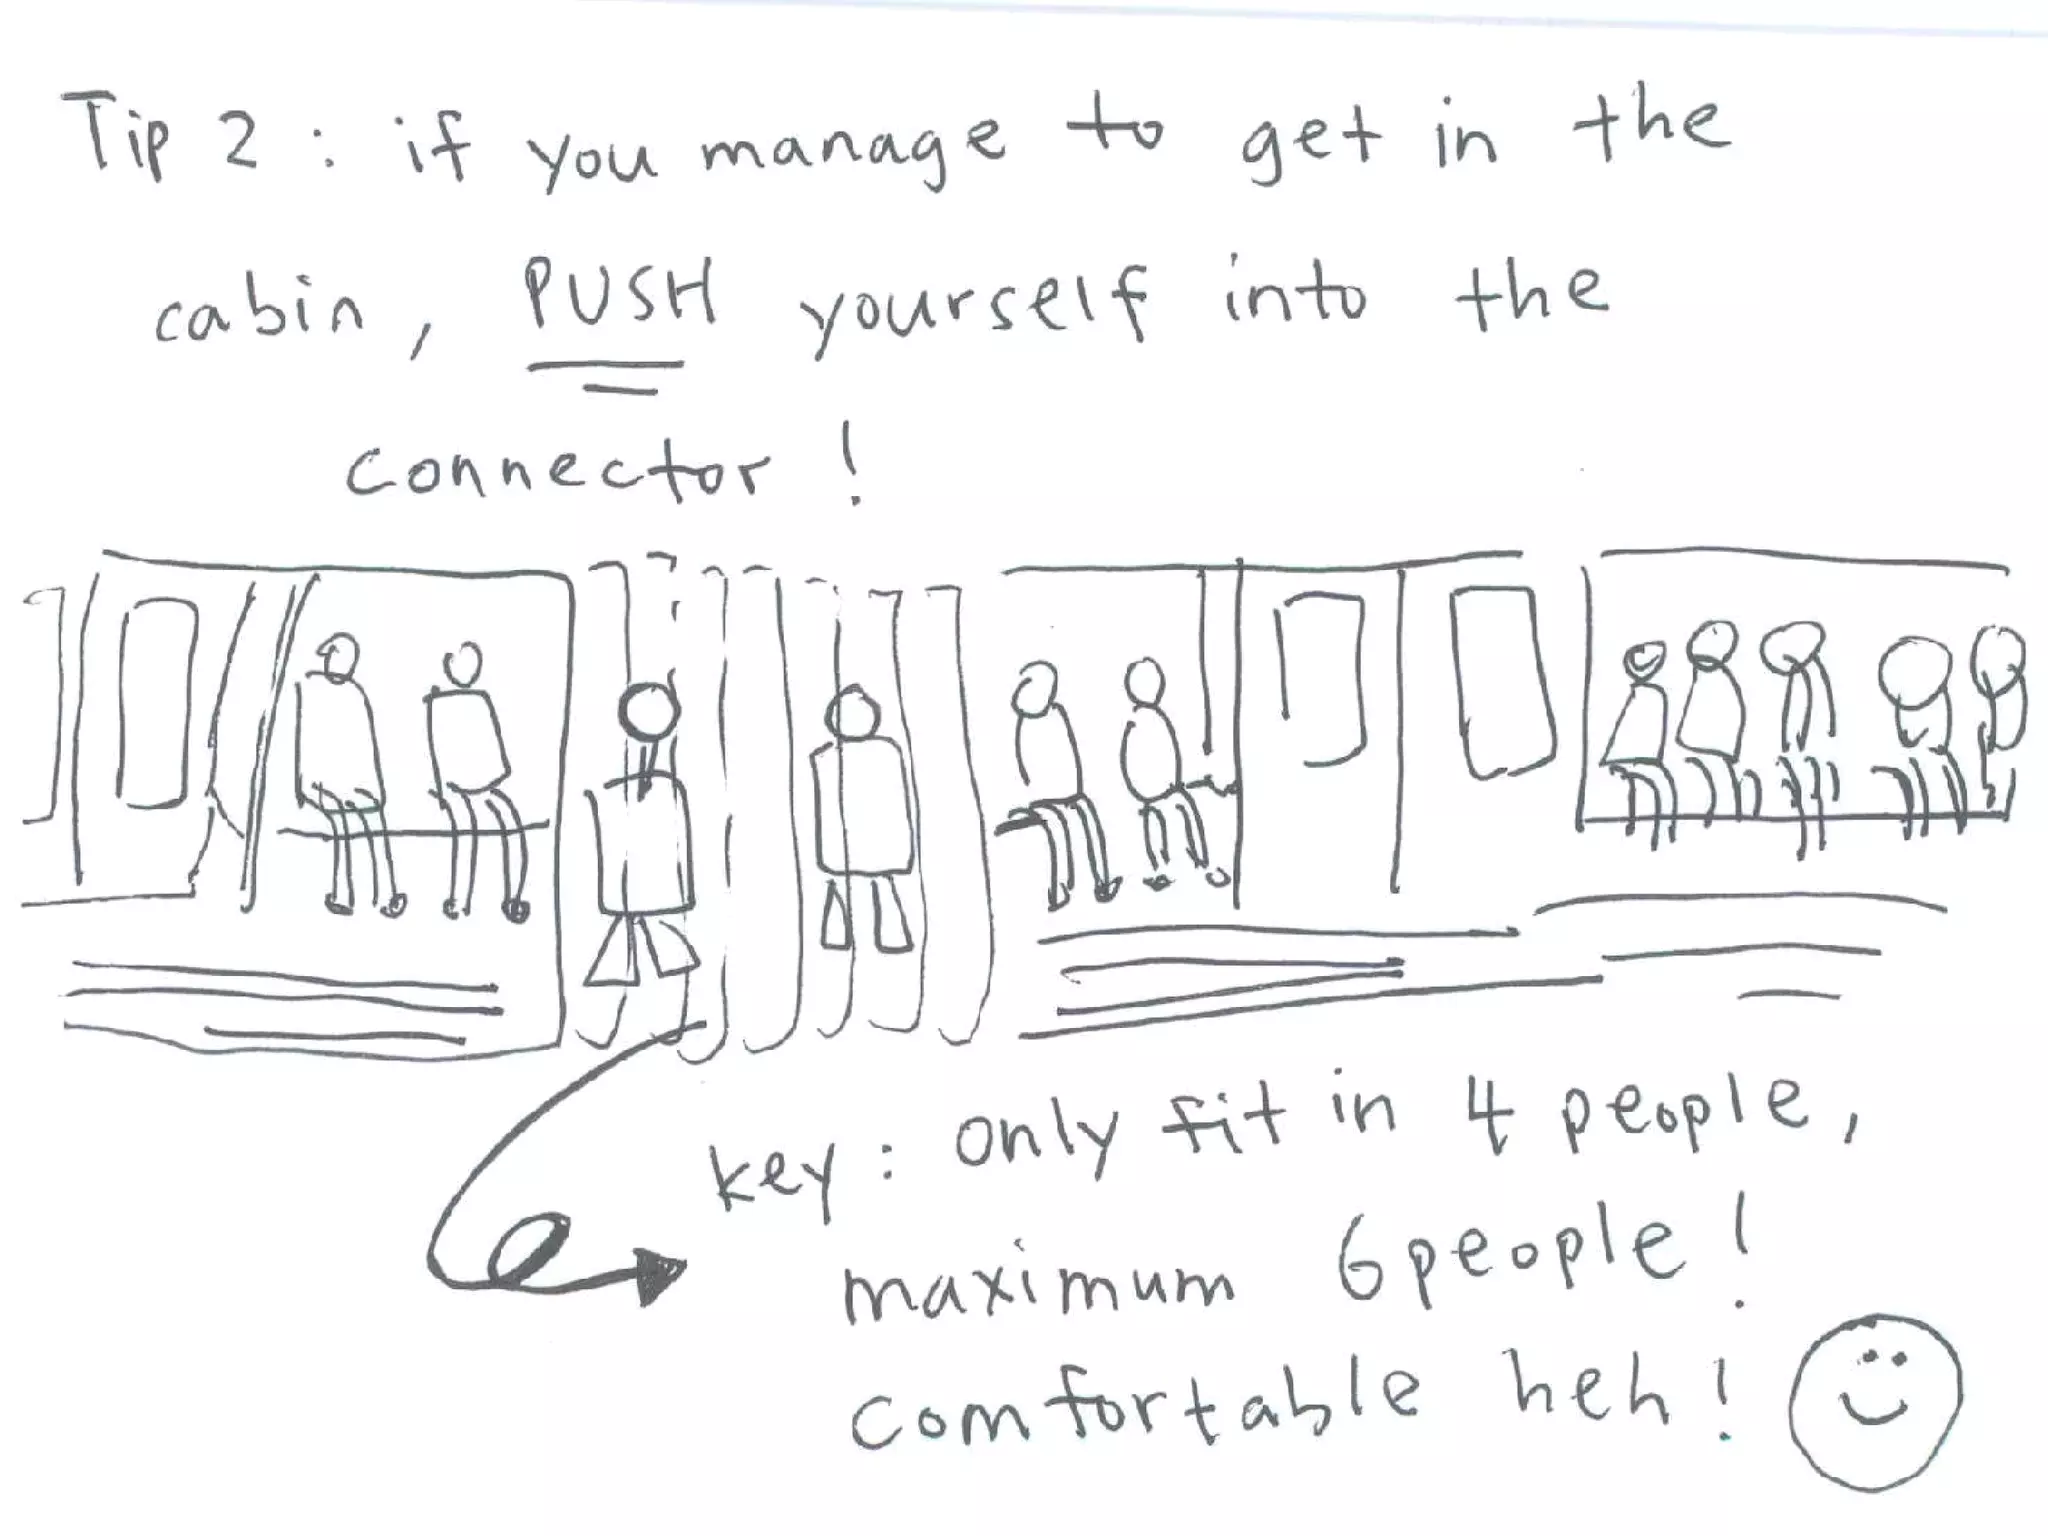 Tip 2 : if you manage to get in the
cabin, PUSH yourself into the
connector !
key : only fit in 4 people,
maximum 6 people !
comfortable heh !